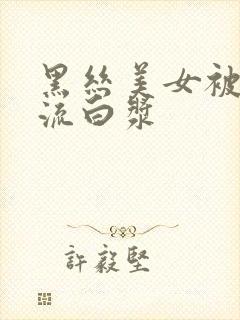 黑丝美女被
流白浆
許毅堅